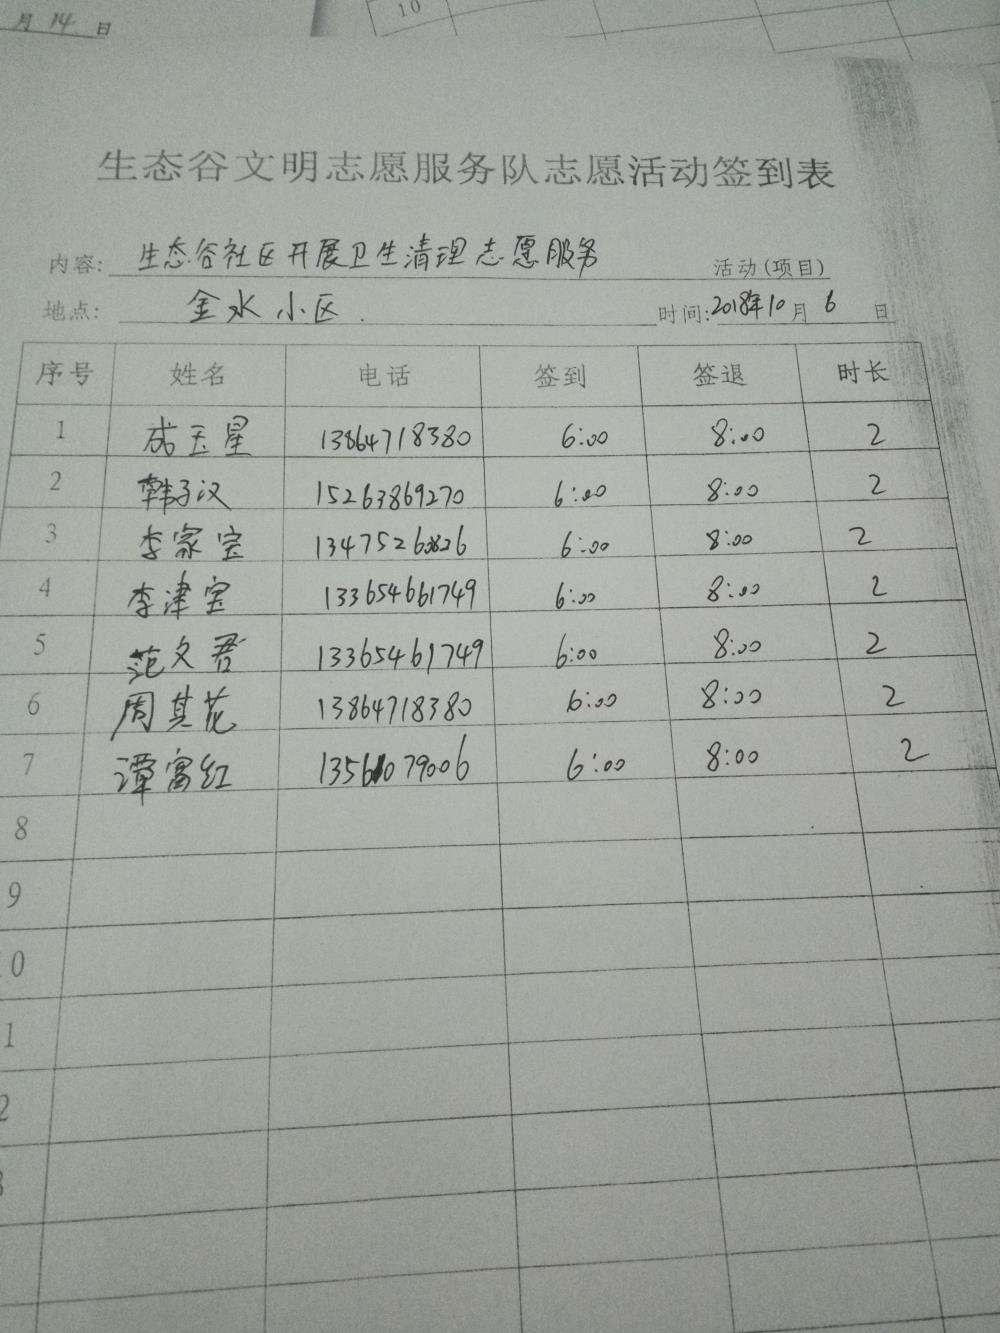 月 14 日
10
生态谷文明志愿服务队志愿活动签到表
内容: 生态谷社区开展卫生清理志愿服务 活动(项目)
地点: 金水小区. 时间:2018年10月6日
序号 姓名 电话 签到 签退 时长
1 成玉星 13864718380 6:00 8:00 2
2 韩子汉 15263869270 6:00 8:00 2
3 李家宝 6:00 8:00 2
4 李津宝 133654661749 6:00 8:00 2
5 范文君 13365461749 6:00 8:00 2
6 周其花 13864718380 6:00 8:00 2
7 谭富红 13561079006 6:00 8:00 2
8
9
0
1
2
3